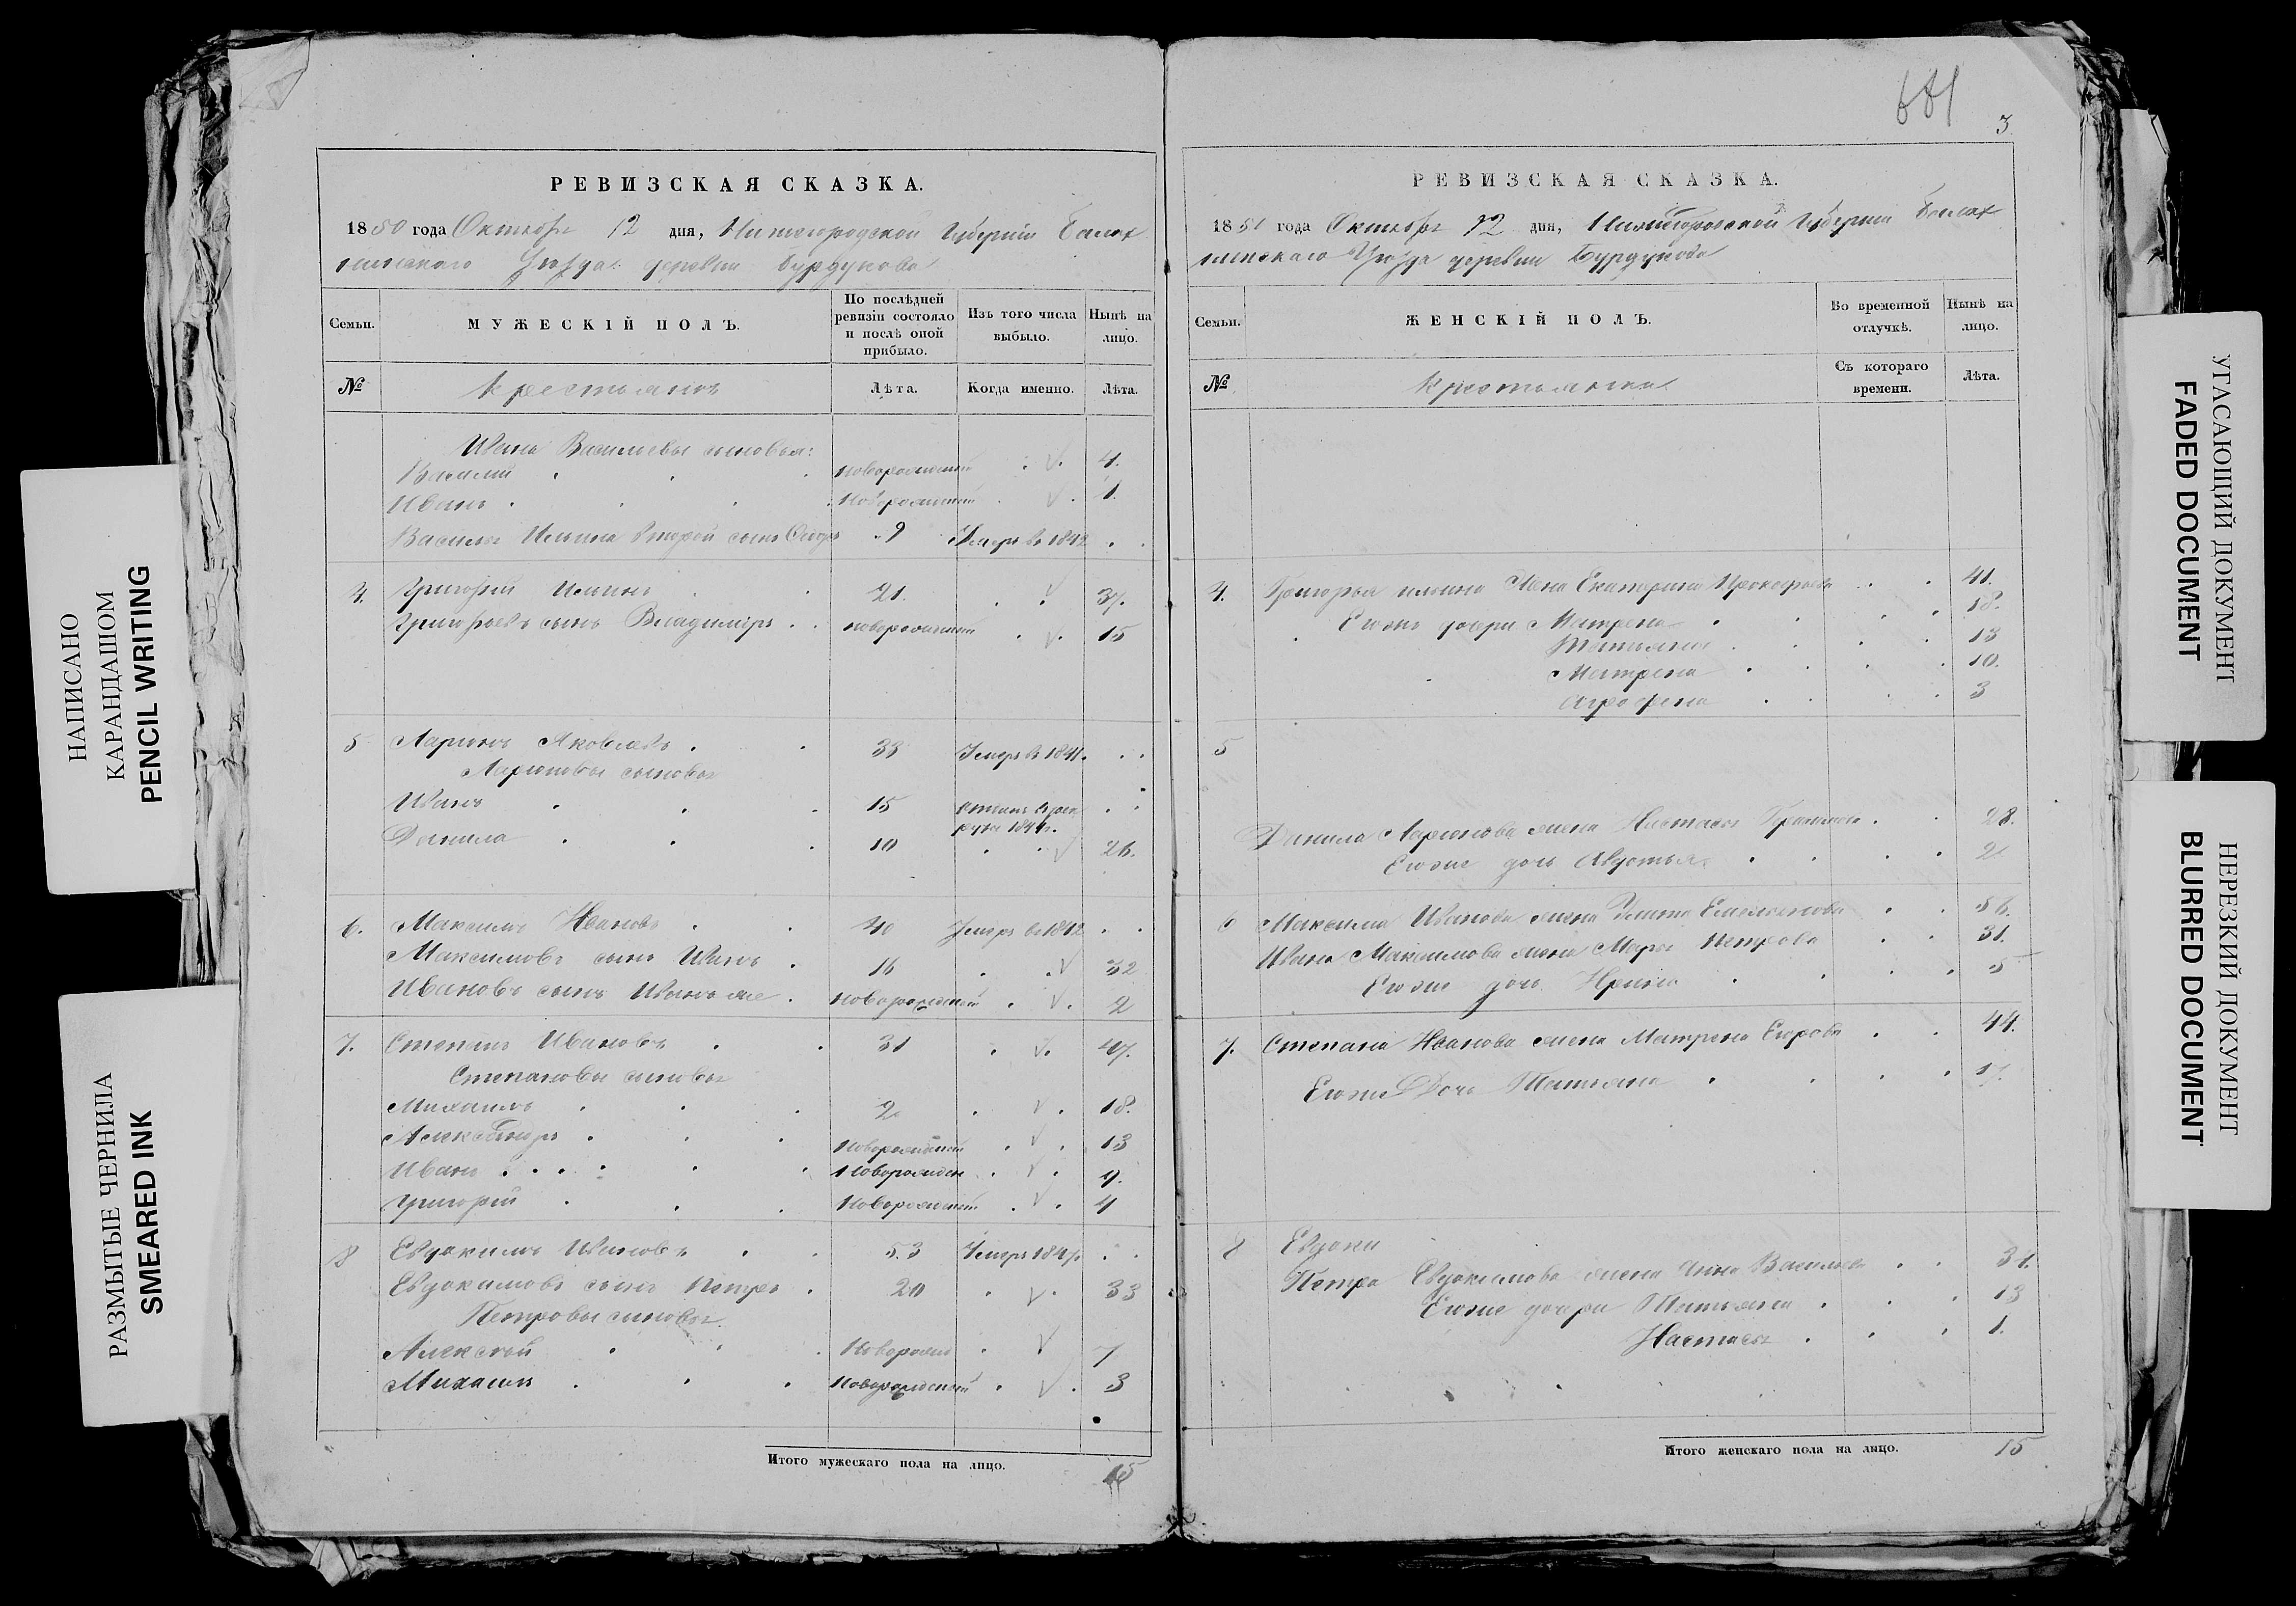 681
3
РЕВИЗСКАЯ СКАЗКА.
1850 года Октября 12 дня, Нижегородской Губернии Балах
нинскаго Уезда деревни Бурдукова
Семьи.
МУЖЕСКІЙ ПОЛЪ.
По послѣдней ревизіи состояло и послѣ оной прибыло.
Изъ того числа выбыло.
Нынѣ на лицо.
№
Крестьянъ
Лѣта.
Когда именно.
Лѣта.
Ивана Васильевы сыновья:
Василій новорожденный 4.
Иванъ новорожденный 1.
Василья Ильина второй сынъ 9 Умеръ въ 1842
4. Григорій Ильинъ 21. 37.
Григорьевъ сынъ Владимиръ новорожденный 15
5 Ларионъ Яковлевъ 33 Умеръ въ 1841.
Ларионовы сыновья
Иванъ 15 рекруты 1844г.
Данила 10 26.
6. Максимъ Ивановъ 40 Умеръ въ 1842
Максимовъ сынъ Иванъ 16 32
Ивановъ сынъ Иванъ же новорожденный 2
7. Степанъ Ивановъ 31 47.
Степановы сыновья
Михаилъ 2 18.
Александръ новорожденный 13
Иванъ новорожден 9.
Григорій новорожденный 4
8 Евдокимъ Ивановъ 53 Умеръ 1847
Евдокимовъ сынъ Петръ 20 33
Петровы сыновья
Алексѣй Новорожд 7
Михаилъ новорожденный 3
Итого мужескаго пола на лицо.
15
РЕВИЗСКАЯ СКАЗКА.
1850 года Октября 12 дня, Нижегородской Губерніи Балах
нинскаго Уезда деревни Бурдукова
Семьи.
ЖЕНСКІЙ ПОЛЪ.
Во временной отлучкѣ.
Нынѣ на лицо.
№
Крестьянки
Съ котораго времени.
Лѣта.
4. Григорья Ильина жена Екатерина Прокофьева 41.
Егожъ дочери Матрена 18.
Татьяна 13
Матрена 10.
Аграфена 3
5
Данила Ларионова жена Настасья 28.
Егоже дочь Авдотья 2
6 Максима Иванова жена Емельянова 56.
Ивана Максимова жена Марья Петрова 31.
Егоже дочь Ирина 5
7. Степана Иванова жена Матрена Егорова 44.
Егоже Дочь Татьяна 17.
8 Евдоки
Петра Евдокимова жена Анна Васильева 31.
Егоже дочери Татьяна 13
Настасья 1.
Итого женскаго пола на лицо.
15
НАПИСАНО КАРАНДАШОМ
PENCIL WRITING
РАЗМЫТЫЕ ЧЕРНИЛА
SMEARED INK
УГАСАЮЩИЙ ДОКУМЕНТ
FADED DOCUMENT
НЕРЕЗКИЙ ДОКУМЕНТ
BLURRED DOCUMENT